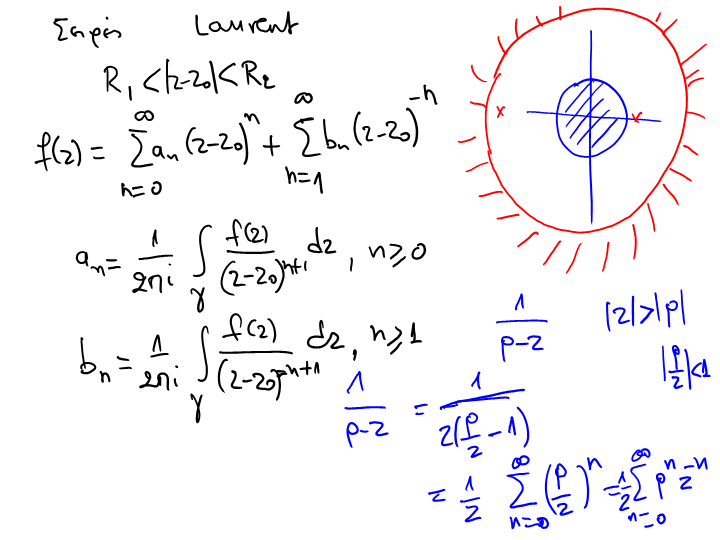 Σειρές Laurent
R₁ < |z-z₀| < R₂
f(z) = ∑_{n=0}^{∞} aₙ (z-z₀)ⁿ + ∑_{n=1}^{∞} bₙ (z-z₀)⁻ⁿ
aₙ = 1/(2πi) ∫_γ f(z)/(z-z₀)ⁿ⁺¹ dz , n ≥ 0
bₙ = 1/(2πi) ∫_γ f(z)/(z-z₀)⁻ⁿ⁺¹ dz , n ≥ 1
1/(p-z) |z| > |p|
|p/z| < 1
1/(p-z) = 1/(z(p/z - 1))
= 1/z ∑_{n=0}^{∞} (p/z)ⁿ = 1/z ∑_{n=0}^{∞} pⁿ z⁻ⁿ